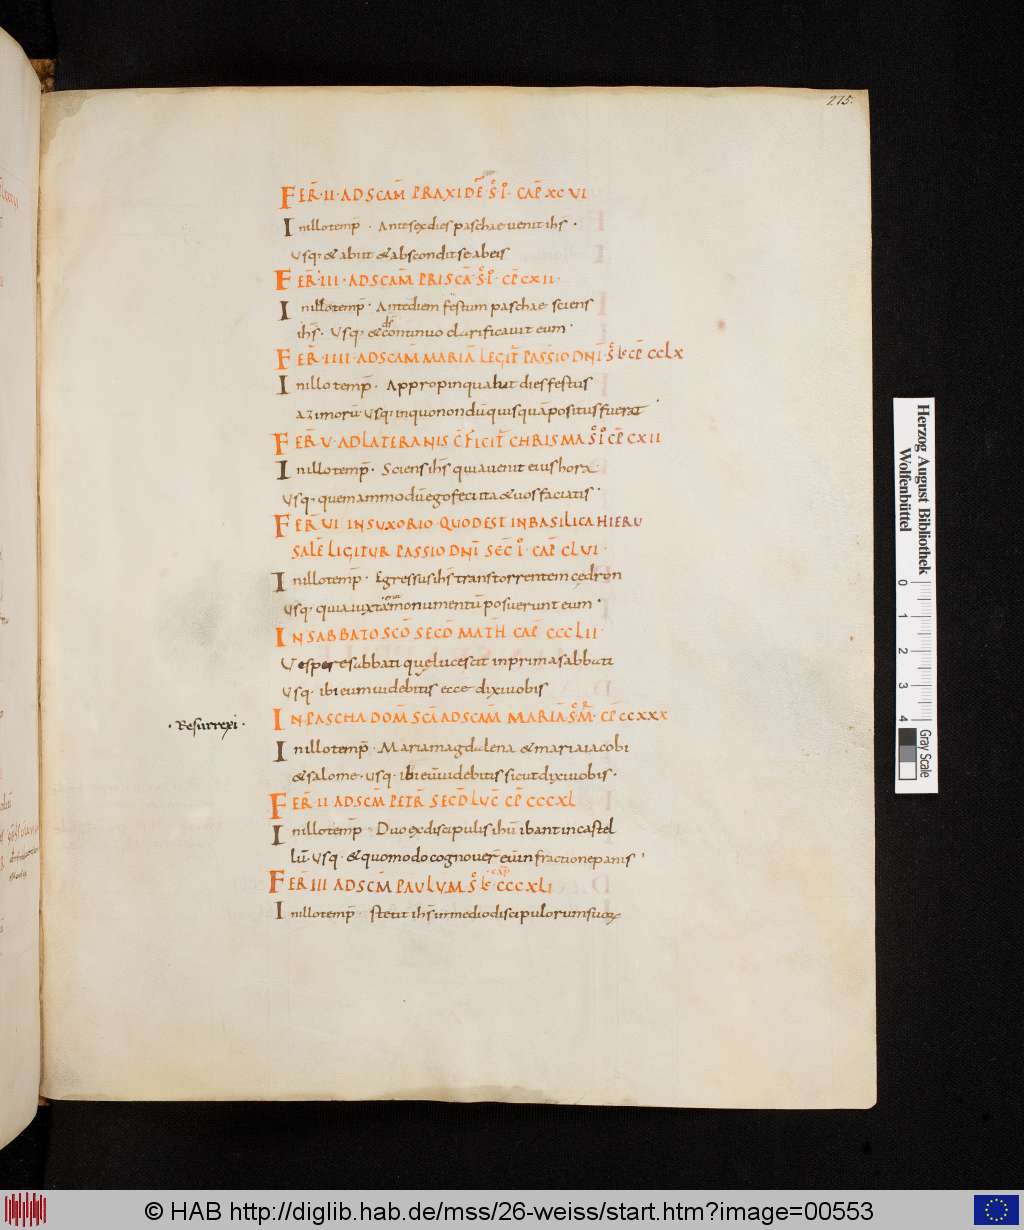 275.
FER̄ · II · AD SCAM̄ PRAXIDĒ · S̄ IO͞ · CAP̄ XCVI
In illo temp̄ · Ante sex dies paschae venit ihs ·
Usq · & abiit & abscondit se ab eis
FER̄ · III · AD SCAM̄ PRISCĀ · S̄ IO͞ · CP̄ CXII ·
In illo temp̄ · Ante diem festum paschae sciens
ihs̄ · Usq · & ds̄ continuo clarificavit eum ·
FER̄ · IIII · AD SCAM̄ MARIĀ LEGIT̄ PASSIO DNĪ · S̄ Lc̄ CP̄ CCLX
In illo temp̄ · Appropinquabat dies festus
azimorū Usq · in quo nondū quisquā positus fuerat
FER̄ V · AD LATERANIS C̄FICIT̄ CHRISMA S̄ IO͞ CP̄ CXII
In illo temp̄ · Sciens ihs̄ quia venit eius hora
Usq · quemammodū ego feci ita & vos faciatis ·
FER̄ VI · IN SUXORIO · QUOD EST IN BASILICA HIERU
SALĒ LIGITUR PASSIO DNĪ SEC̄ IO͞ · CAP̄ CLVI ·
In illo temp̄ · Egressus ihs̄ trans torrentem cedron
Usq · quia iuxta monumentū posuerunt eum ·
IN SABBATO SCŌ SECD̄ MATH̄ CAP̄ CCCLII ·
Vespere sabbati que lucescit in prima sabbati
Usq · ibi eum videbitis ecce dixi vobis
· Resurrexi ·
IN PASCHA DOM̄ SCĪ AD SCAM̄ MARIĀ S̄ MR̄ · CP̄ CCXXX
In illo temp̄ · Maria magdalena & maria iacobi
& salome · Usq · ibi eū videbitis sicut dixi vobis ·
FER̄ II AD SCM̄ PETR̄ SECD̄ LUC̄ CP̄ CCCXL
In illo temp̄ · Duo ex discipulis ihū ibant in castel
lū Usq · & quomodo cognover̄ eū in fractione panis
FER̄ III AD SCM̄ PAULUM S̄ Lc̄ · CAP̄ CCCXLI
In illo temp̄ · Stetit ihs̄ in medio discipulorum suorum
Herzog August Bibliothek
Wolfenbüttel
0 1 2 3 4
Gray Scale
© HAB http://diglib.hab.de/mss/26-weiss/start.htm?image=00553